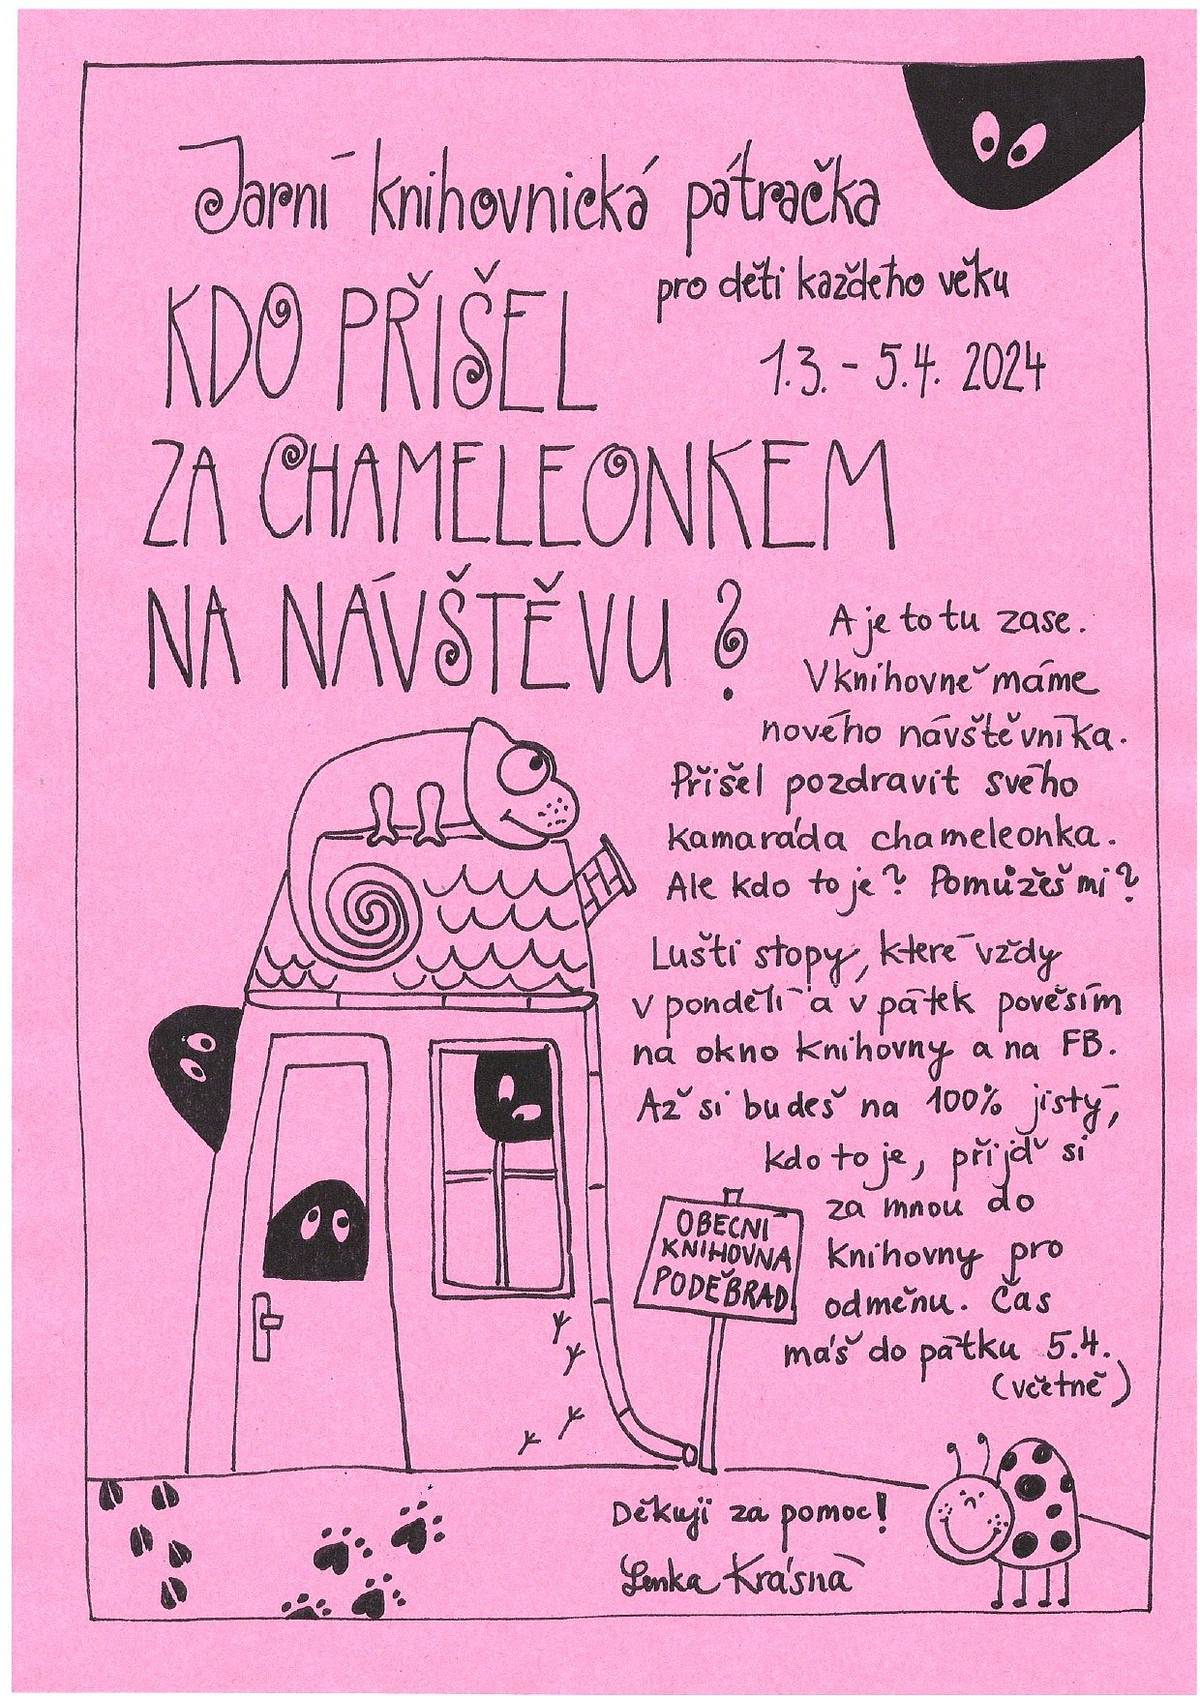 Jarní knihovnická pátračka
pro děti každého věku
KDO PŘIŠEL
1.3. - 5.4. 2024
ZA CHAMELEONKEM
NA NÁVŠTĚVU?
A je to tu zase.
V knihovně máme
nového návštěvníka.
Přišel pozdravit svého
kamaráda chameleonka.
Ale kdo to je? Pomůžeš mi?
Lušti stopy, které vždy
v pondělí a v pátek pověsím
na okno knihovny a na FB.
Až si budeš na 100% jistý,
kdo to je, přijď si
za mnou do
knihovny pro
odměnu. Čas
máš do pátku 5.4.
(včetně)
OBECNÍ
KNIHOVNA
PODĚBRAD
Děkuji za pomoc!
Lenka Krásná